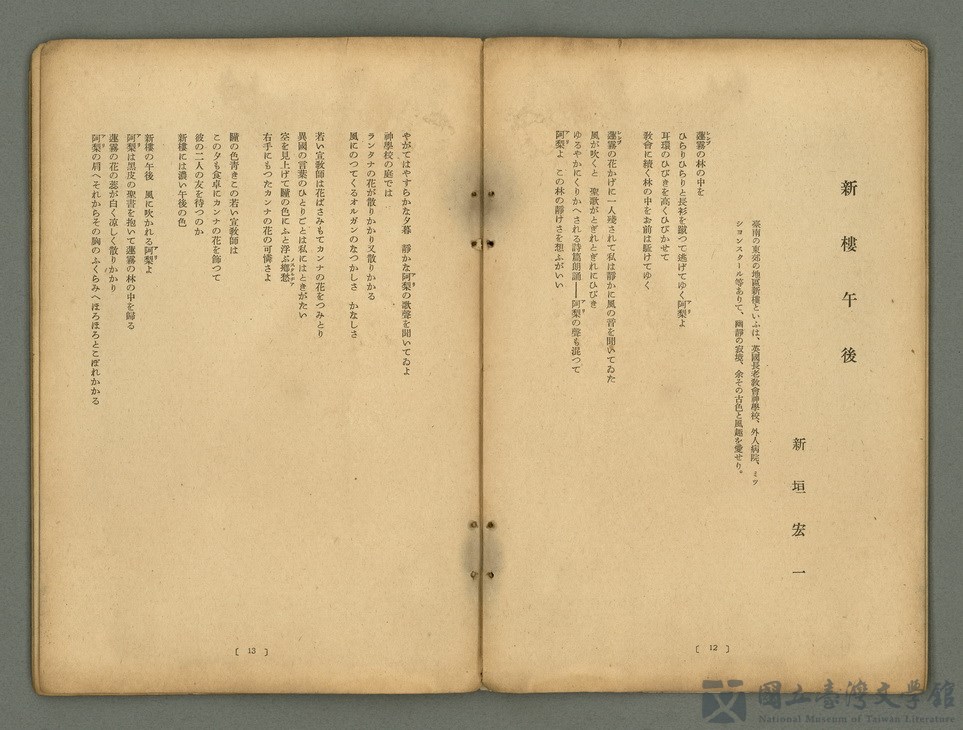 新樓午後
新垣宏一
臺南の東郊の地區新樓といふは、英國長老敎會神學校、外人病院、ミツ
シヨンスクール等ありて、幽靜の寂境、余その古色と風趣を愛せり。
蓮霧の林の中を
ひらりひらりと長衫を蹴つて逃げてゆく阿梨よ
耳環のひびきを高くひびかせて
敎會に續く林の中をお前は駈けてゆく
蓮霧の花かげに一人殘されて私は靜かに風の音を聞いてゐた
風が吹くと 聖歌がとぎれとぎれにひびき
ゆるやかにくりかへされる詩篇朗誦――阿梨の聲も混つて
阿梨よ この林の靜けさを想ふがいい
〔 12 〕
やがてはやすらかな夕暮 靜かな阿梨の歌聲を聞いてゐよ
神學校の庭では
ランタナの花が散りかかり又散りかかる
風にのつてくるオルガンのなつかしさ かなしさ
若い宣敎師は花ばさみもてカンナの花をつみとり
異國の言葉のひとりごとは私にはときがたい
空を見上げて瞳の色にふと浮ぶ鄕愁
右手にもつたカンナの花の可憐さよ
瞳の色靑きこの若い宣敎師は
この夕も食卓にカンナの花を飾つて
彼の二人の友を待つのか
新樓には濃い午後の色
新樓の午後 風に吹かれる阿梨よ
阿梨は黑皮の聖書を抱いて蓮霧の林の中を歸る
蓮霧の花の蕊が白く涼しく散りかかり
阿梨の肩へそれからその胸のふくらみへほろほろとこぼれかかる
〔 13 〕
國立臺灣文學館
National Museum of Taiwan Literature